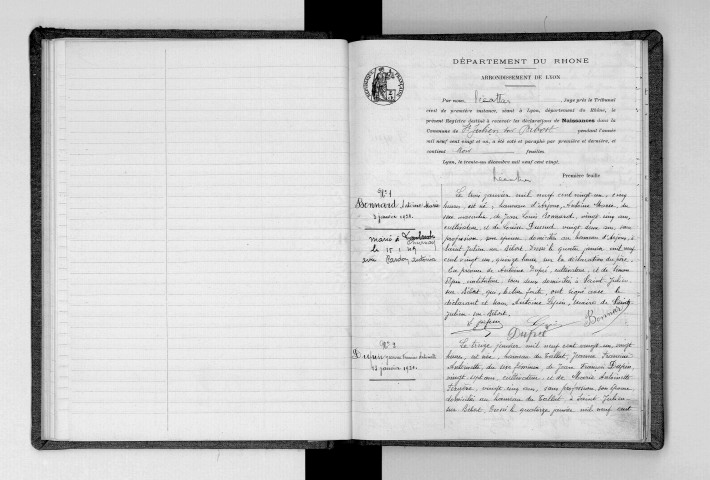 DÉPARTEMENT DU RHONE
ARRONDISSEMENT DE LYON
Par nous, Juge près le Tribunal
civil de première instance, séant à Lyon, département du Rhône, le
présent Registre destiné à recevoir les déclarations de Naissances dans la
Commune de St Julien sur Bibost pendant l'année
mil neuf cent vingt et un, a été coté et paraphé par première et dernière, et
contient feuilles.
Lyon, le trente-un décembre mil neuf cent vingt.
Première feuille
N° 1
Bonnard Antoine Marie
3 janvier 1921.
marié à
le 15
avec Antoinette
Le trois janvier mil neuf cent vingt un, cinq
heures, est né, hameau d'Arjoux, Antoine Marie, du
sexe masculin, de Jean Louis Bonnard, vingt cinq ans,
cultivateur, et de Louise vingt deux ans, sans
profession, son épouse, domiciliés au hameau d'Arjoux, à
Saint Julien sur Bibost. Dressé le quatre janvier mil neuf
cent vingt un, quinze heures, sur la déclaration du père,
En présence de Antoine Dupré, cultivateur, et de
institutrice, tous deux domiciliés à Saint Julien
sur Bibost, qui, lecture faite, ont signé avec le
déclarant et nous, Antoine maire de Saint
Julien sur Bibost.
Bonnard
Dupré
N° 2
Jeanne Francine Antoinette
13 janvier 1921.
Le treize janvier mil neuf cent vingt un, vingt
heures, est née, hameau du Jeanne Francine
Antoinette, du sexe féminin, de Jean François
vingt sept ans, cultivateur, et de Marie Antoinette
vingt cinq ans, sans profession, son épouse,
domiciliés au hameau du à Saint Julien
sur Bibost. Dressé le quatorze janvier mil neuf cent